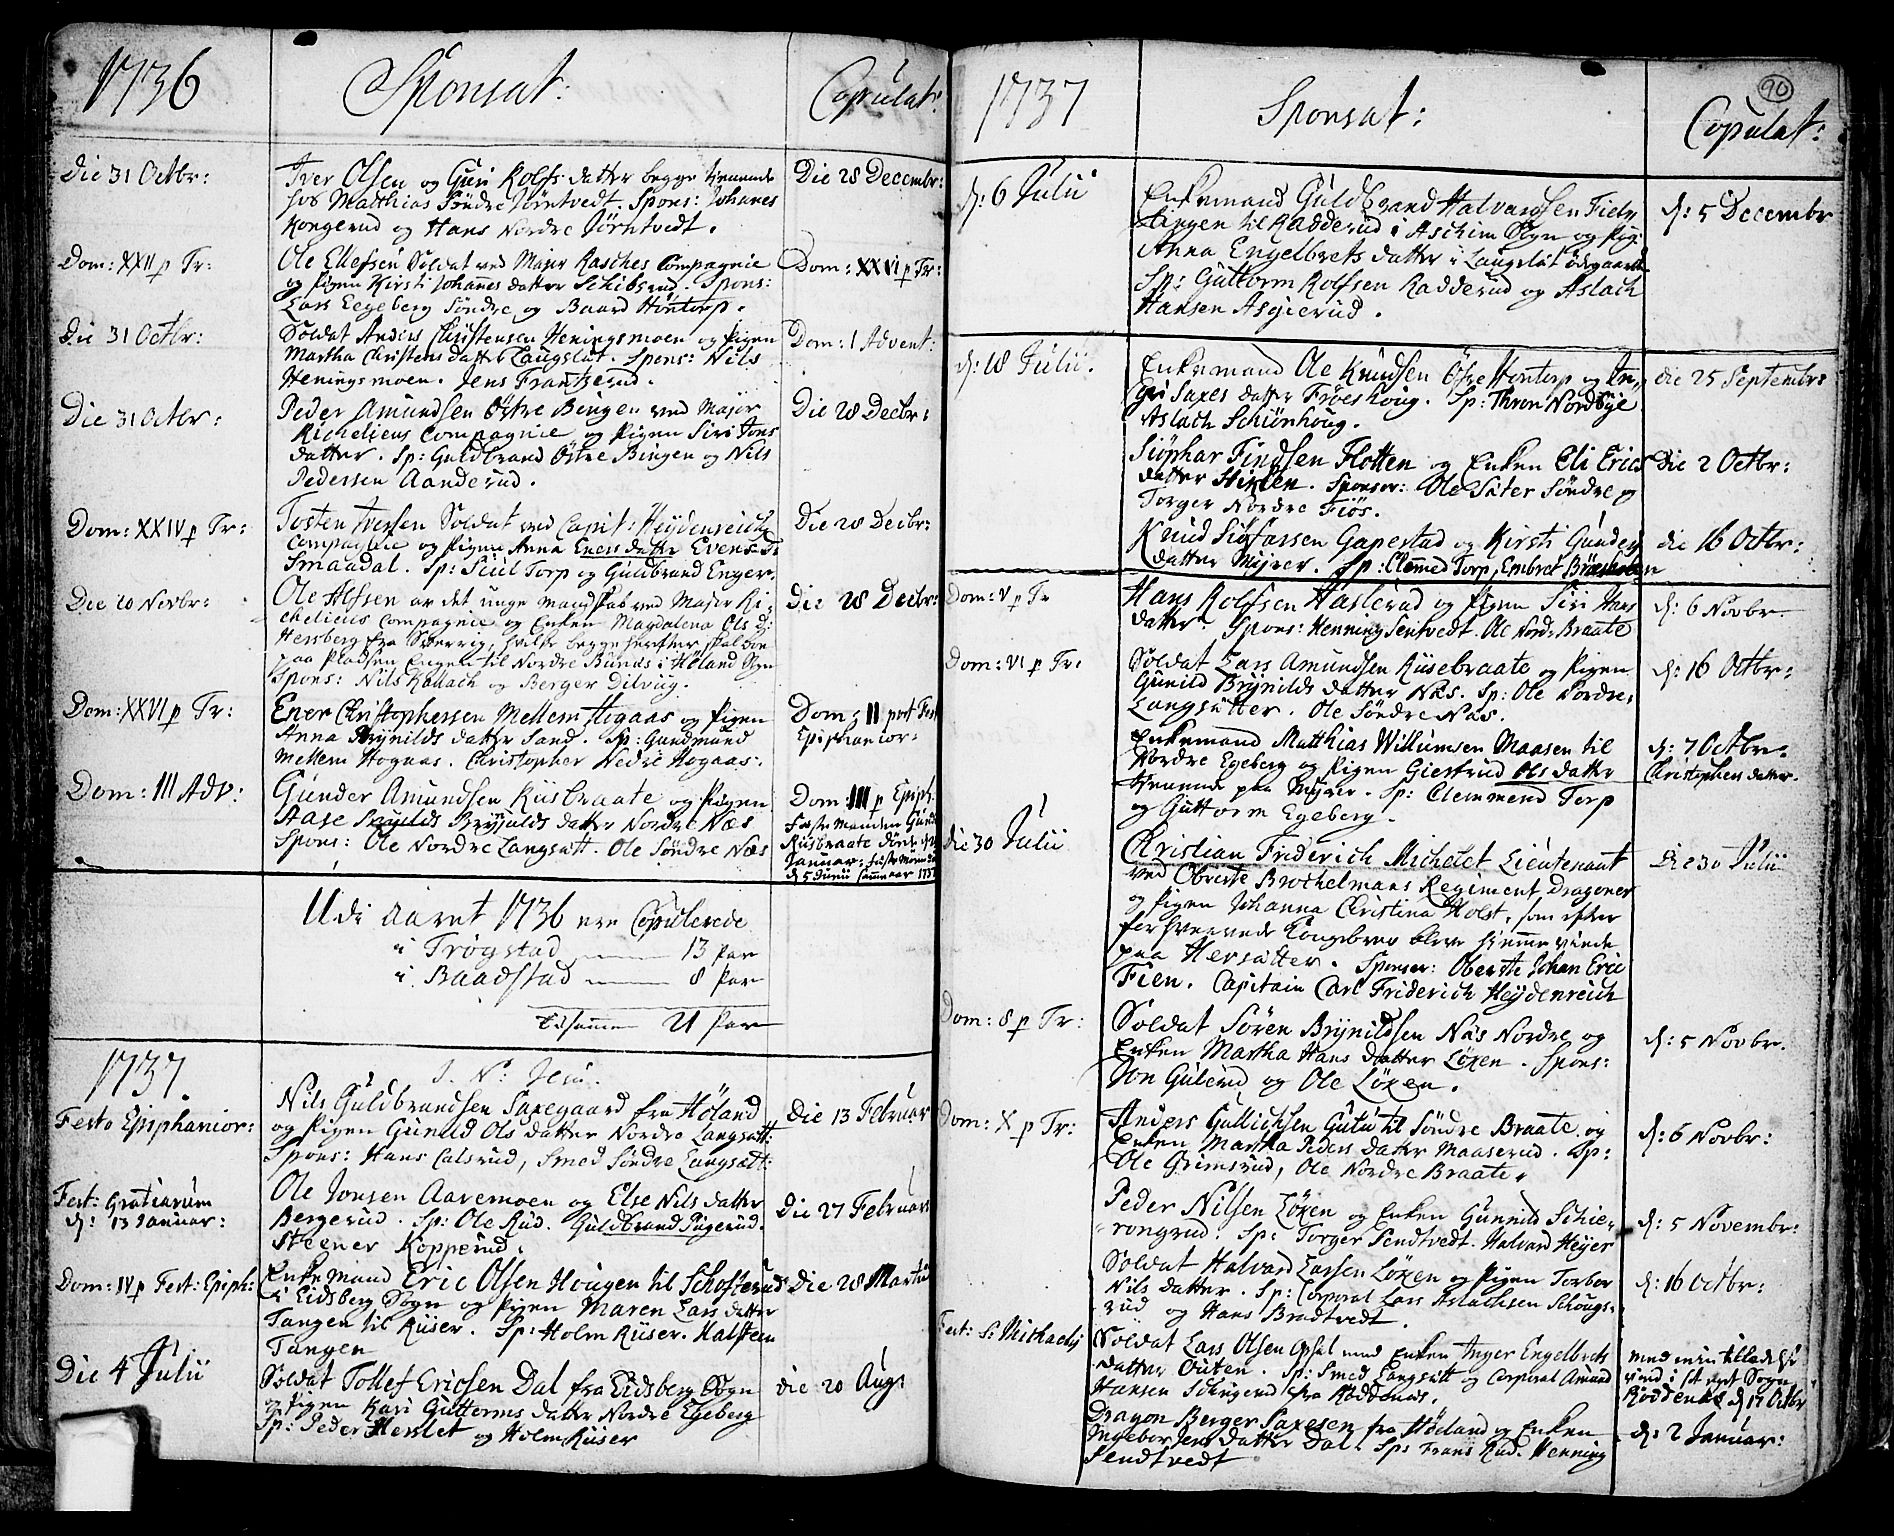 1736
Sponsat:
Copulat:
Die 31 Octbr:
Iver Olsen og Guri Rolfs datter begge tienende
hos Matthias Söndre Jörntvedt. Spons: Johanes
Kongerud og Hans Nordre Jörntvedt.
Die 28 Decembr:
Dom: XXII p Tr:
Ole Ellefsen Soldat ved Major Rasches Compagnie
og Pigen Kirsti Johanes datter Schibsrud. Spons:
Lars Eegeberg Söndre og Baard Höntorp.
Dom: XXVI p Tr:
Die 31 Octbr:
Soldat Anders Christensen Heningsmoen og Pigen
Martha Christens datter Langslet. Spons: Nils
Heningsmoen. Jens Frantzerud.
Dom: 1 Advent:
Die 31 Octbr:
Peder Amundsen Östre Bingen ved Major
Richelieus Compagnie og Pigen Siri Jons
datter. Sp: Guldbrand Östre Bingen og Nils
Pedersen Aanderud.
Die 28 Decbr:
Dom: XXIV p Tr:
Tosten Iversen Soldat ved Capit: Heydenreichs
Compagnie og Pigen Anna Eners datter Evens d:
Smaadal. Sp: Siul Torp og Guldbrand Enger.
Die 28 Decbr:
Die 20 Novbr:
Ole Alfsen av det unge mandskab ved Major Ri-
chelieus Compagnie og Enken Magdalena Ols d:
Hessberg fra Sverrig, hvilke begge herefter skal boe
paa Pladsen Engen til Nordre Bunes i Höland Sogn
Spons: Nils Kallach og Berger Dilviig.
Die 28 Decbr:
Dom: XXVI p Tr:
Ener Christophersen Mellem Hogaas og Pigen
Anna Brynilds datter Sand. Sp: Gundmund
Mellem Hogaas. Christopher Nedre Hogaas:
Dom: II post Fest
Epiphanior:
Dom: III Adv:
Gunder Amundsen Riisbraate og Pigen
Aase Brynilds datter Nordre Næs
Spons: Ole Nordre Langsætt. Ole Söndre Næs
Dom III p Epiph.
Feste Manden Gund
Riisbraate döde
Januar:
d 5 Junii samme aar 1737
Udi Aaret 1736 ere Copulerede
i Trøgstad 13 Par
i Baadstad 8 Par
Tilsammen 21 Par
1737.
J. N: Jesu.
Festo Epiphanior:
Nils Guldbrandsen Saxegaard fra Höland
og Pigen Gunild Ols datter Nordre Langsætt:
Spons: Hans Calsrud, Smed Söndre Langsætt:
Die 13 Februar
Fest: Gratiarum
d: 13 Januar:
Ole Jonsen Aaremoen og Else Nils datter
Bergerud. Sp: Ole Rud. Guldbrand Pügerud.
Steener Kopperud.
Die 27 Februar
Dom: IV p Fest: Epiph:
Enke Mand Eric Olsen Hougen til Schofterud
i Eidsberg Sogn og Pigen Maren Lars datter
Tangen til Riiser. Sp: Holm Riiser. Halsteen
Tangen
Die 28 Martii
Die 4 Julii
Soldat Tollef Ericsen Dal fra Eidsberg Sogn
og Pigen Kari Guttorms datter Nordre Egeberg
Sp: Peder Heslet og Holm Riiser
die 20 Aug:
1737
Sponsat:
Copulat:
90
d: 6 Julii
Enkemand Guldbrand Halvardsen Fiel-
lingen til Radderud i Aschim Sogn og Pig:
Anna Engelbrets datter i Langslet ödegaard
Sp: Guttorm Rolfsen Radderud og Aslach
Hansen Asgierud.
d: 5 Decembr
d: 18 Julii.
Enkemand Ole Knudsen Östre Höntorp og In-
geri Saxes datter Fröeshoug. Sp: Thron Nordbye
Aslach Schiönhoug.
die 25 Septembr:
Siöphar Findsen Flotten og Enken Eli Erics
datter Hielen. Sponser: Ole Säter Söndre og
Torger Nordre Fiös.
Die 2 Octbr:
Knud Siofarssen Gapestad og Kirsti Gunders
datter Myrer. Sp: Clemmed Torp, Embret Bräkholen
die 16 Octbr:
Dom: V p Tr
Hans Rolfsen Haslerud og Pigen Siri Hans
datter. Spons: Henning Sentvedt. Ole Nord: Braate
d: 6 Novbr.
Dom: VI p Tr:
Soldat Lars Amundsen Riisebraate og Pigen
Gunild Brynilds datter Näs. Sp: Ole Nordre
Langsätter. Ole Söndre Näs.
d: 16 Octbr:
Enkemand Matthias Willumsen Maasen til
Nordre Egeberg og Pigen Giertrud Ols datter
tienende paa Myrer. Sp: Clemmend Torp
og Guttorm Egeberg.
d: 7 Octbr.
Christophers datter.
die 30 Julii
Christian Friderich Michelet Lieutenant
ved Oberste Brochelmans Regiment Dragoner
og Pigen Johanna Christina Holst, som efter
forhvervede Kongebrev blev hiemme viede
paa Hersätter. Sponser: Oberste Johan Eric
Fien. Capitain Carl Friderich Heydenreich
die 30 Julii
Dom: 8 p Tr:
Soldat Sören Brynildsen Näs Nordre og
Enken Martha Hans datter Löxen. Spons:
Jon Gulerud og Ole Löxen.
d: 5 Novbr.
Dom: X p Tr:
Anders Gullichsen Gutu til Söndre Braate. og
Enken Martha Peders datter Maaserud. Sp:
Ole Grimsrud, Ole Nordre Braate.
d: 6 Novbr:
Peder Nilsen Löxen og Enken Gunnild Schie-
rongrud. Sp: Torger Sendtvedt. Halvard Heyer
d: 5 Novembr:
Soldat Halvard Larsen Löxen og Pigen Torbor
Nils datter. Sp: Corporal Lars Aslachsen Schougs-
rud og Hans Bradtvedt.
d: 16 Octbr:
Fest: S: Michaelis
Soldat Lars Olsen Opsal med Enken Inger Engelbrets
datter Outen. Sp: Smed Langsätt og Corporal Amund
Hansen Schrigerud fra Röddenäs.
med min tilladelse
viid i sit eget Sogn
Röddenes d 17 Octbr
Dragon Berger Saxesen fra Höeland og Enken
Ingebor Jens datter Dal. Sp: Frans Rud. Henning
Sendtvedt
d: 2 Januar: